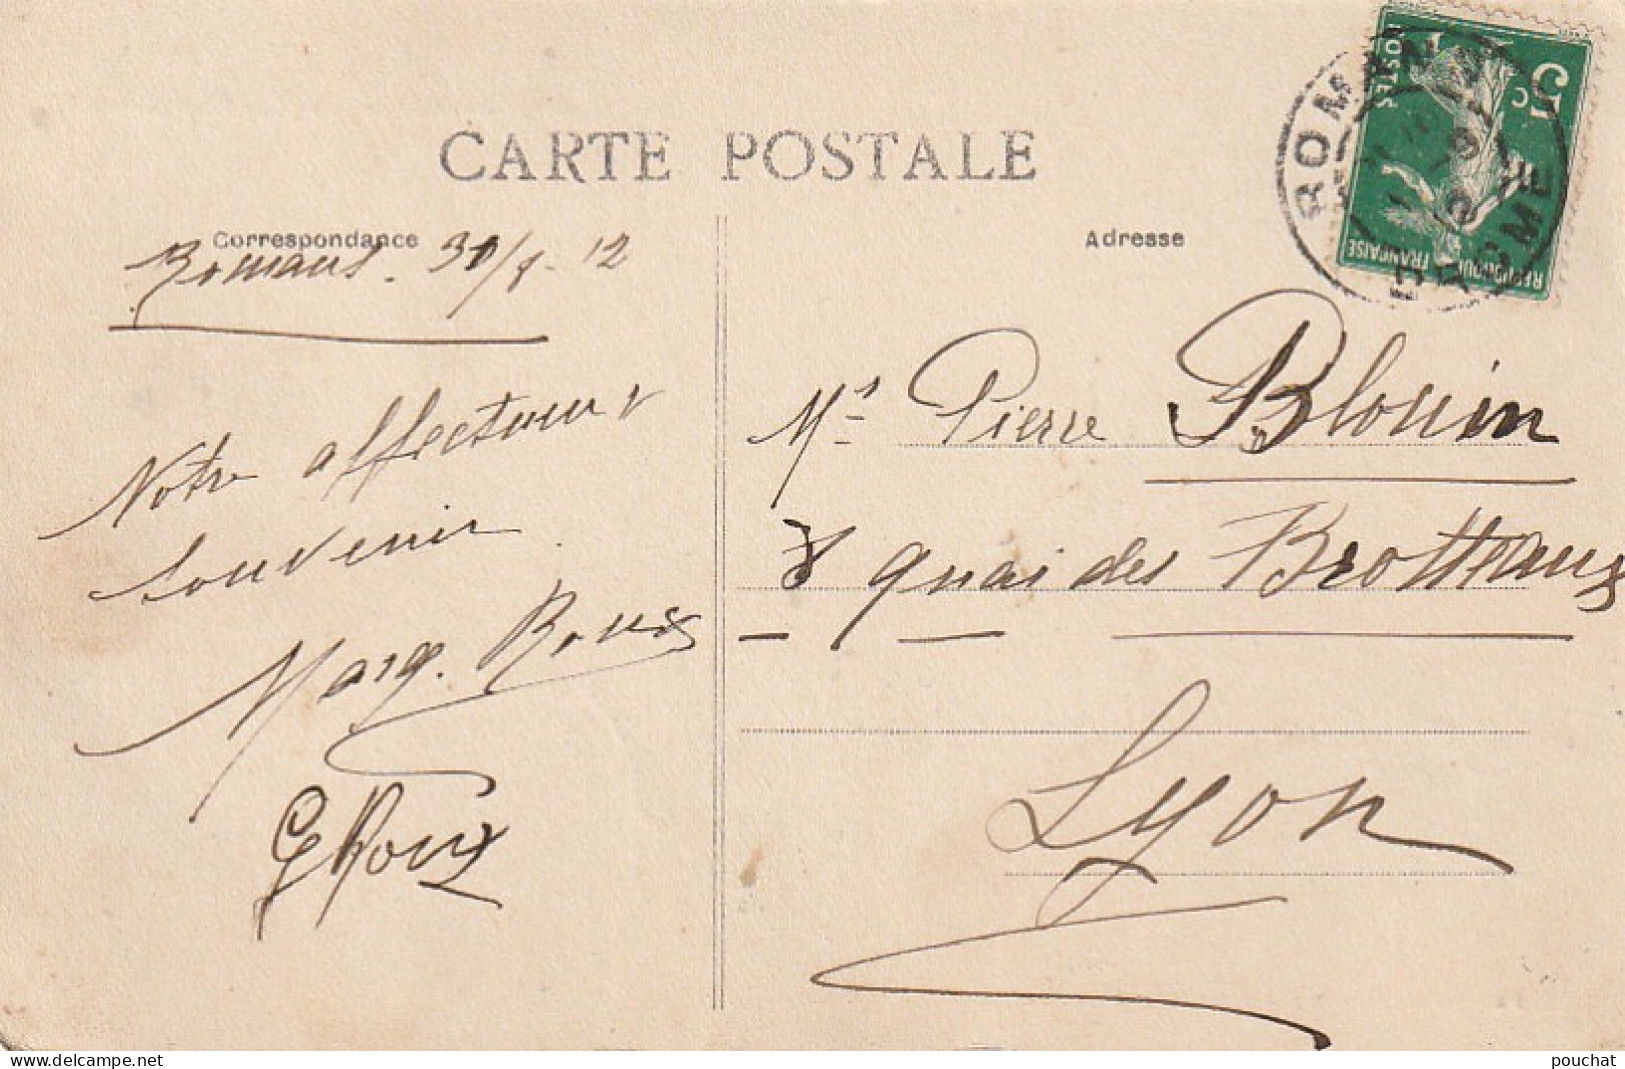 CARTE POSTALE
Correspondance
Romans. 31/8-12
Notre affectueux
souvenir.
Marg. Roux
G Roux
Adresse
Mr Pierre Blouin
8 quai des Brotteaux
Lyon
ROMANS
DROME
POSTES
5c
REPUBLIQUE FRANÇAISE
www.delcampe.net
pouchat